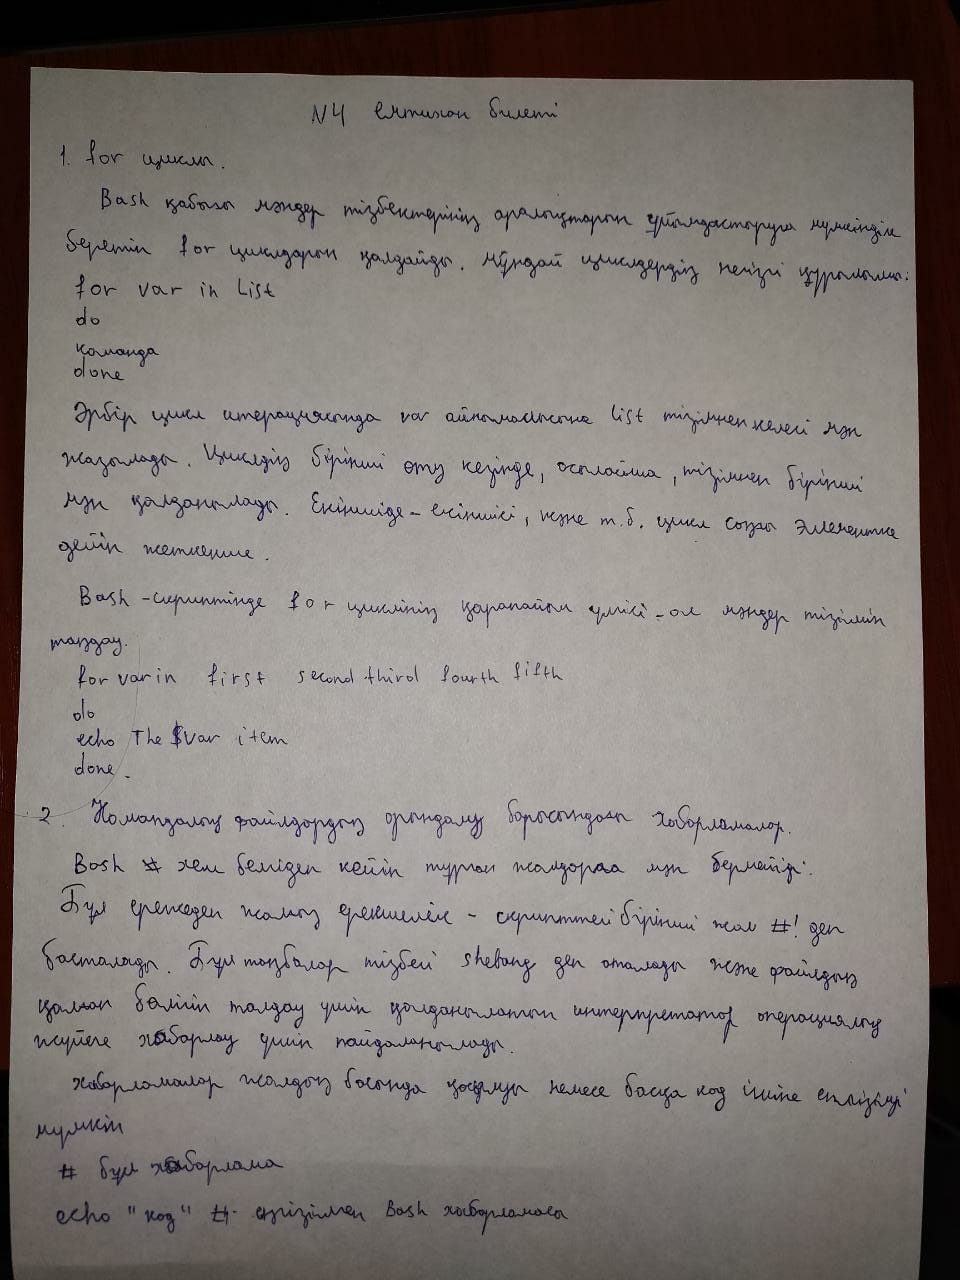 N4 емтихан билеті
1. for циклы.
Bash қабығы мәндер тізбектерінің аралықтарын ұйымдастыруға мүмкіндік
беретін for циклдарын қолдайды. Мұндай циклдердің негізгі құрылымы:
for var in List
do
команда
done
Әрбір цикл итерациясында var айнымалысына list тізімнен келесі мән
жазылады. Циклдің бірінші өту кезінде, осылайша, тізімнен бірінші
мән қолданылады. Екіншіде - екіншісі, және т.б. цикл соңғы элементке
дейін жеткенше.
Bash - скриптінде for циклінің қарапайым үлгісі - ол мәндер тізімін
таңдау.
for var in first second third fourth fifth
do
echo The $var item
done.
2. Командалық файлдардың орындалу барысындағы хабарламалар.
Bash # хеш белгіден кейін тұрған жолдарға мән бермейді.
Бұл ережеден жалғыз ерекшелік - скрипттегі бірінші жол #! деп
басталады. Бұл таңбалар тізбегі shebang деп аталады және файлдың
қалған бөлігін талдау үшін қолданылатын интерпретатор операциялық
жүйеге хабарлау үшін пайдаланылады.
Хабарламалар жолдың басында қосылуы немесе басқа код ішіне енгізілуі
мүмкін
# бұл хабарлама
echo "код" # енгізілген Bash хабарламасы